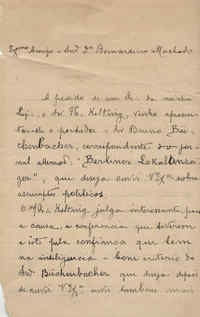 Exmo Amigo e Snr Dr. Bernardino Machado
A pedido de um
Snr Th. Kelting, venho apresen-
tar-lhe o portador - Snr Bruno Bus-
chenbacher, correspondente do jor-
nal allemão, "Berliner Lokalanzei-
ger", que deseja ouvir V. Exa sobre
assumptos politicos.
O Snr Kelting julga interessante para
a causa, a conferencia que tiverem
e isto pela confiança que tem
na intelligencia e bom criterio do
Snr Buschenbacher que deseja depois
de ouvir V. Exa ouvir tambem mais